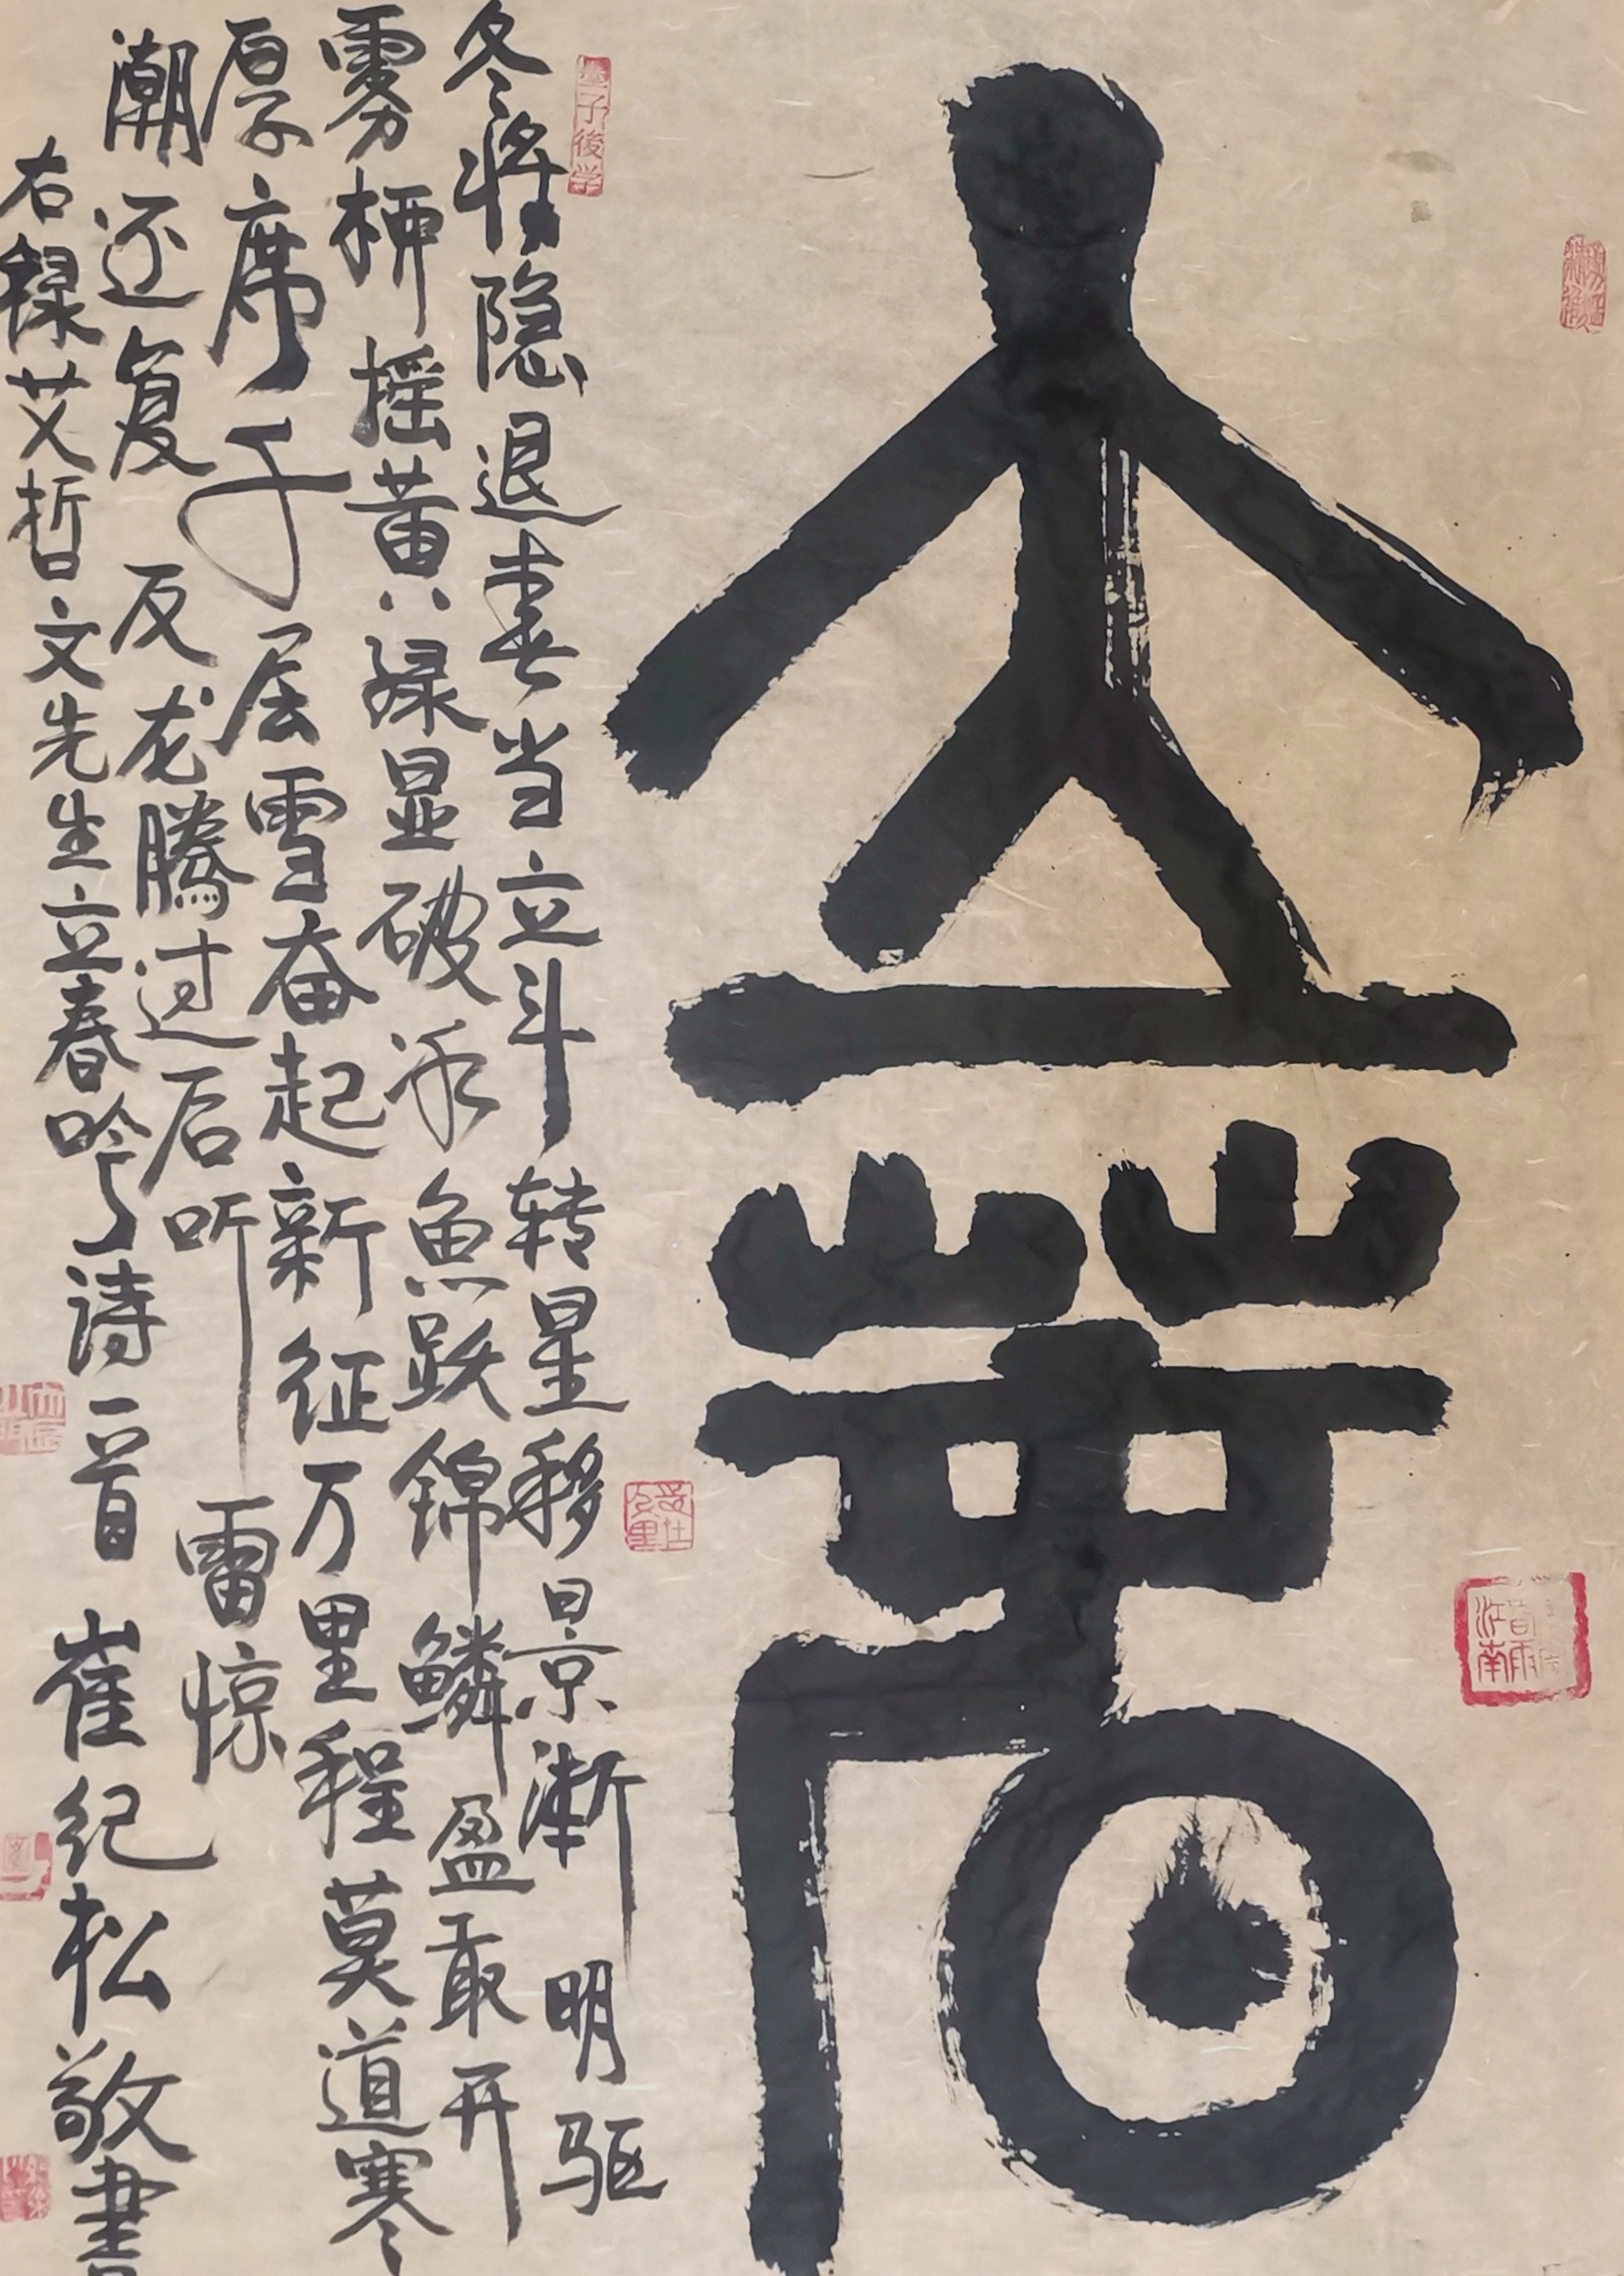 立春
子後学
冬将隐退春当立斗转星移景渐明驱
雾柳摇黄绿显破冰鱼跃锦鳞盈敢开
厚席千层雪奋起新征万里程莫道寒
潮还复反龙腾过后听雷惊
右録艾哲文先生立春吟诗一首 崔纪松敬書